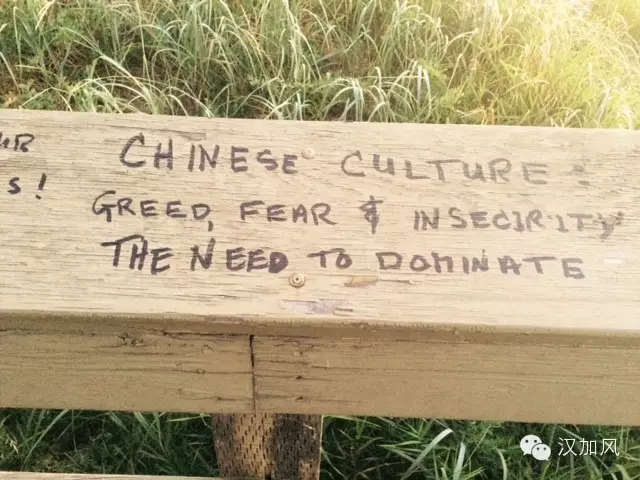 CHINESE CULTURE :
S!
GREED, FEAR & INSECIRITY
THE NEED TO DOMINATE
汉加风